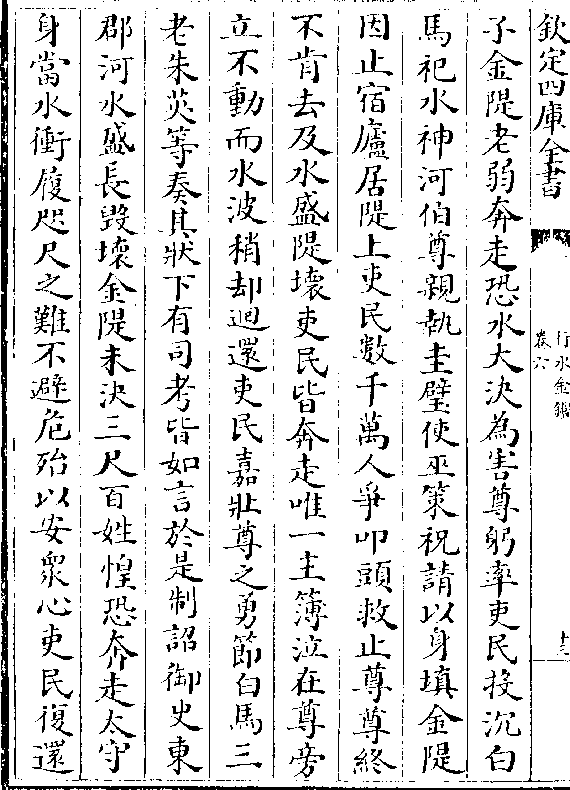 欽定四庫全書
行水金鑑
卷六
十三
子金隄老弱奔走恐水大決為害尊躬率吏民投沉白
馬祀水神河伯尊親執圭璧使巫策祝請以身填金隄
因止宿廬居隄上吏民數千萬人爭叩頭救止尊尊終
不肯去及水盛隄壞吏民皆奔走唯一主簿泣在尊旁
立不動而水波稍却迴還吏民嘉壯尊之勇節白馬三
老朱英等奏其狀下有司考皆如言於是制詔御史東
郡河水盛長毀壞金隄未決三尺百姓惶恐奔走太守
身當水衝履咫尺之難不避危殆以安衆心吏民復還